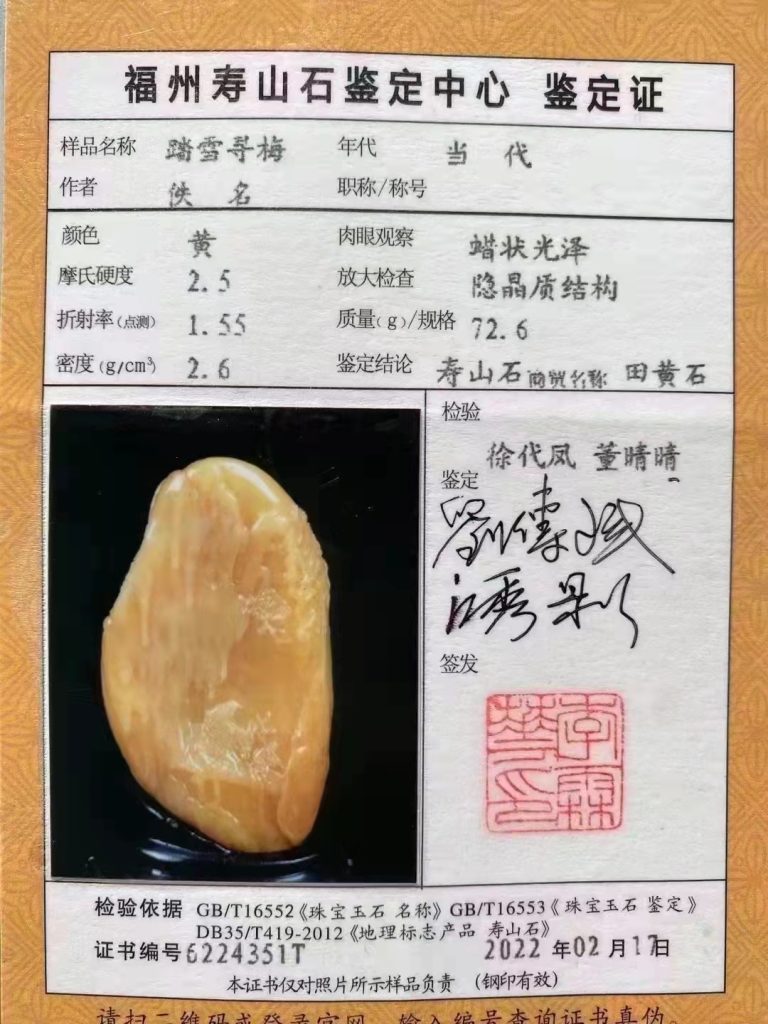 福州寿山石鉴定中心 鉴定证
样品名称 踏雪寻梅 年代 当 代
作者 佚 名 职称/称号
颜色 黄 肉眼观察 蜡状光泽
摩氏硬度 2.5 放大检查 隐晶质结构
折射率(点测) 1.55 质量(g)/规格 72.6
密度(g/cm³) 2.6 鉴定结论 寿山石 商贸名称 田黄石
检验
徐代凤 董晴晴
鉴定
签发
检验依据 GB/T16552《珠宝玉石 名称》GB/T16553《珠宝玉石 鉴定》
DB35/T419-2012《地理标志产品 寿山石》
证书编号6224351T 2022 年02 月17日
本证书仅对照片所示样品负责 (钢印有效)
请扫二维码或登录官网，输入编号查询证书真伪。